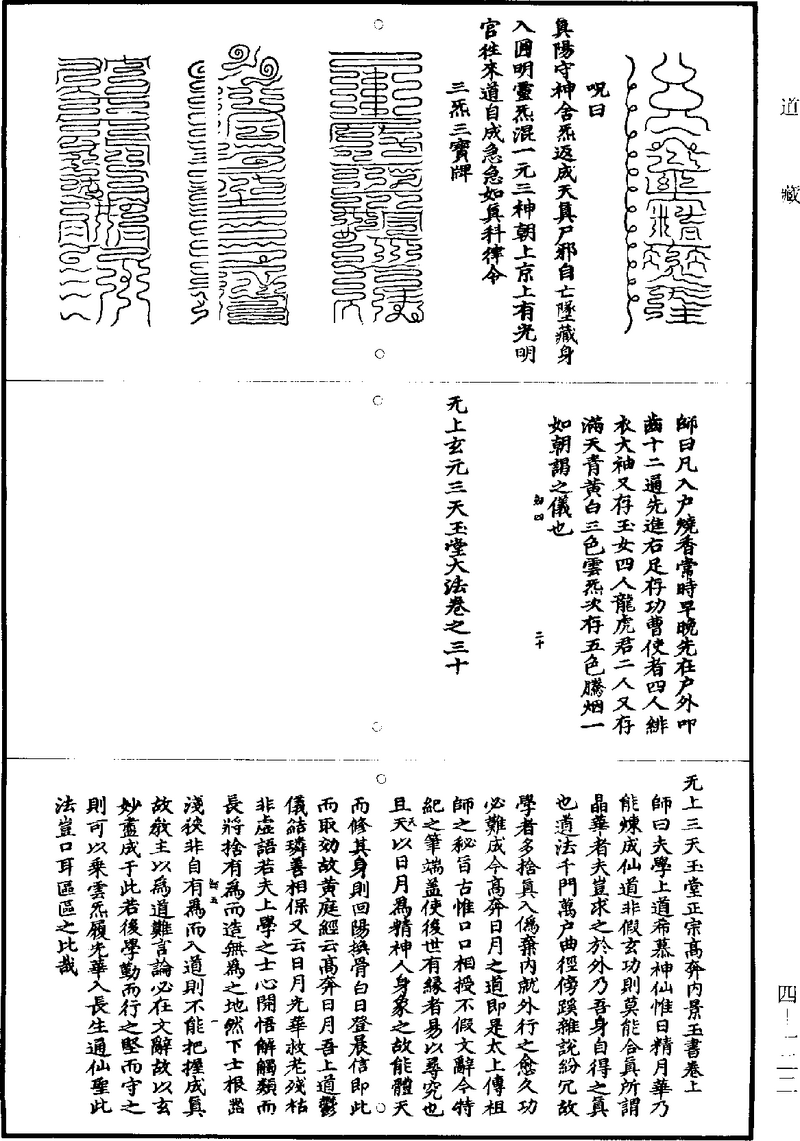 道藏
呪曰
真陽守神舍炁返成天真尸邪自亡墜藏身
入圓明靈炁混一元三神朝上京上有光明
官往來道自成急急如真科律令
三炁三寶牌
師曰凡入户燒香常時早晚先在户外叩
齒十二通先進右足存功曹使者四人緋
衣大袖又存玉女四人龍虎君二人又存
滿天青黃白三色雲炁次存五色騰烟一
如朝謁之儀也
二十
无上玄元三天玉堂大法卷之三十
无上三天玉堂正宗高奔內景玉書卷上
師曰夫學上道希慕神仙惟日精月華乃
能煉成仙道非假玄功則莫能合真所謂
晶華者夫豈求之於外乃吾身自得之真
也道法千門萬户曲徑傍蹊雜說紛冗故
學者多捨真入偽棄內就外行之愈久功
必難成今高奔日月之道即是太上傳祖
師之秘旨古惟口口相授不假文辭今特
紀之筆端蓋使後世有緣者易以尋究也
且天以日月為精神人身象之故能體天
而修其身則回陽換骨白日登晨信即此
而取効故黃庭經云高奔日月吾上道鬱
儀結璘善相保又云日月光華救老殘枯
非虛語若夫上學之士心開悟解觸類而
長將捨有為而造無為之地然下士根器
淺狹非自有為而入道則不能把握成真
故教主以為道難言論必在文辭故以玄
妙盡成于此若後學勤而行之堅而守之
則可以乘雲炁履光華入長生通仙聖此
法豈口耳區區之比哉